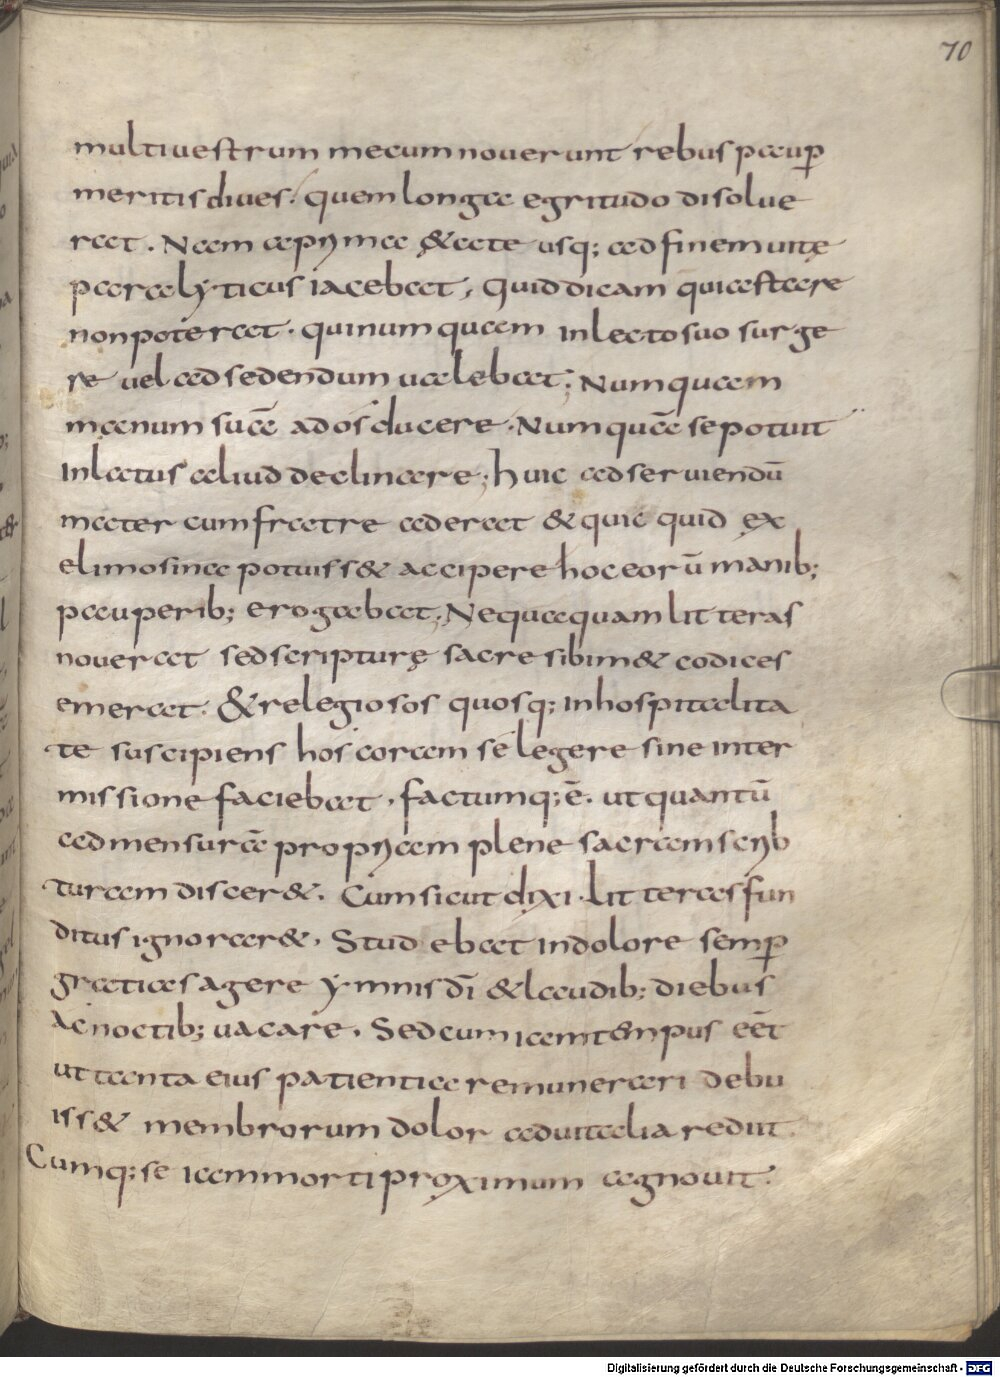 70
multi uestrum mecum nouerunt rebus paup̄
meritis diues. quem longa egritudo disolue
rat. Nam a primę & ate usq; ad finem uitę
paralyticus iacebat, Quid dicam qui astare
non poterat. qui numquam in lecto suo surge
re uel ad sedendum ualebat; Numquam
manum suā ad os ducere. Numquā se potuit
in latus aliud declinare; huic ad seruiendū
mater cum fratre aderat & quic quid ex
elimosina potuiss& accipere hoc eorū manib;
pauperib; erogabat. Nequaquam litteras
nouerat sed scripturę sacre sibim& codices
emerat. & relegiosos quosq; in hospitalita
te suscipiens hos coram se legere sine inter
missione faciebat. factumq; ē. ut quantū
ad mensurā propriam plene sacram scrib
turam discer&. Cum sicut dixi. litteras fun
ditus ignorar&. Studebat in dolore semp̄
gratias agere ymnis dī & laudib; diebus
ac noctib; uacare. Sed cum iam tempus eēt
ut tanta eius patientia remunerari debu
iss& membrorum dolor ad uitalia rediit.
Cumq; se iam morti proximum agnouit.
Digitalisierung gefördert durch die Deutsche Forschungsgemeinschaft - DFG